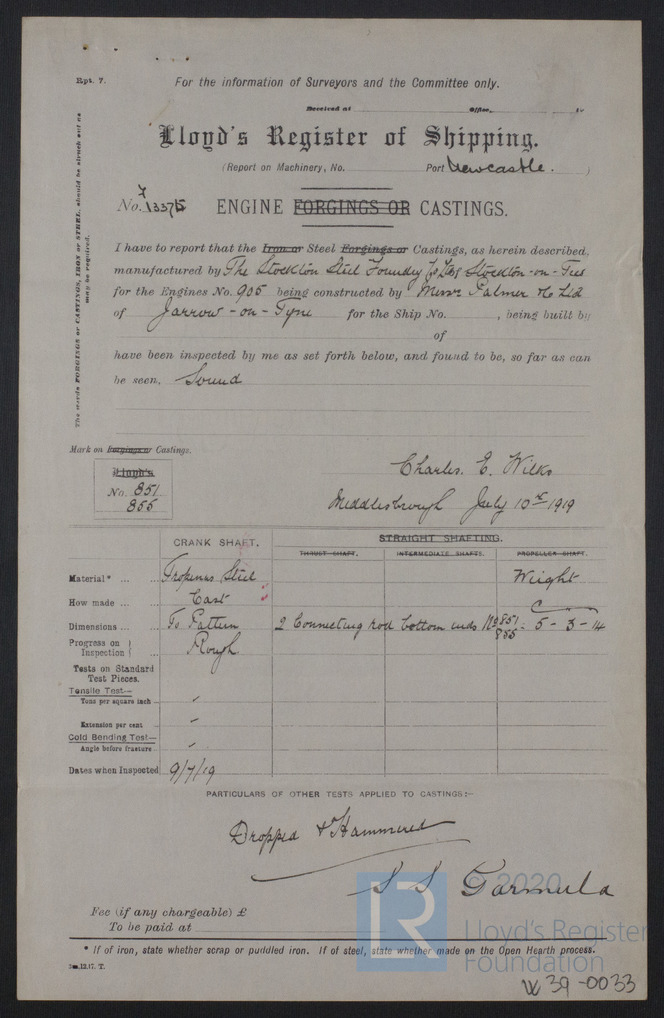 Rpt. 7.
For the information of Surveyors and the Committee only.
Received at Office, 19
Lloyd's Register of Shipping.
(Report on Machinery, No. Port Newcastle. )
No. 13375
ENGINE FORGINGS OR CASTINGS.
The words FORGINGS or CASTINGS, IRON or STEEL, should be struck out as may be required.
I have to report that the Iron or Steel Forgings or Castings, as herein described,
manufactured by The Stockton Steel Foundry Co Ltd Stockton-on-Tees
for the Engines No. 905 being constructed by Messrs Palmer & Co Ltd
of Jarrow-on-Tyne for the Ship No. , being built by
of
have been inspected by me as set forth below, and found to be, so far as can
be seen, Sound
Mark on Forgings or Castings.
Lloyd's
No. 851
855
Charles. E. Wilks
Middlesbrough July 10th 1919
CRANK SHAFT.
STRAIGHT SHAFTING.
THRUST SHAFT. INTERMEDIATE SHAFTS. PROPELLER SHAFT.
Material* ... ... Tropenas Steel Weight
How made ... ... Cast C
Dimensions ... ... To Pattern 2 Connecting rod bottom ends No 851 855 : 5 - 3 - 14
Progress on Inspection ... Rough
Tests on Standard
Test Pieces.
Tensile Test—
Tons per square inch ..
Extension per cent ..
Cold Bending Test—
Angle before fracture ..
Dates when Inspected 9/7/19
PARTICULARS OF OTHER TESTS APPLIED TO CASTINGS:—
Dropped & Hammered
S S Garmula
Fee (if any chargeable) £
To be paid at
* If of iron, state whether scrap or puddled iron. If of steel, state whether made on the Open Hearth process.
5m.12.17. T.
© 2020
LR
Lloyd's Register
Foundation
W39-0033